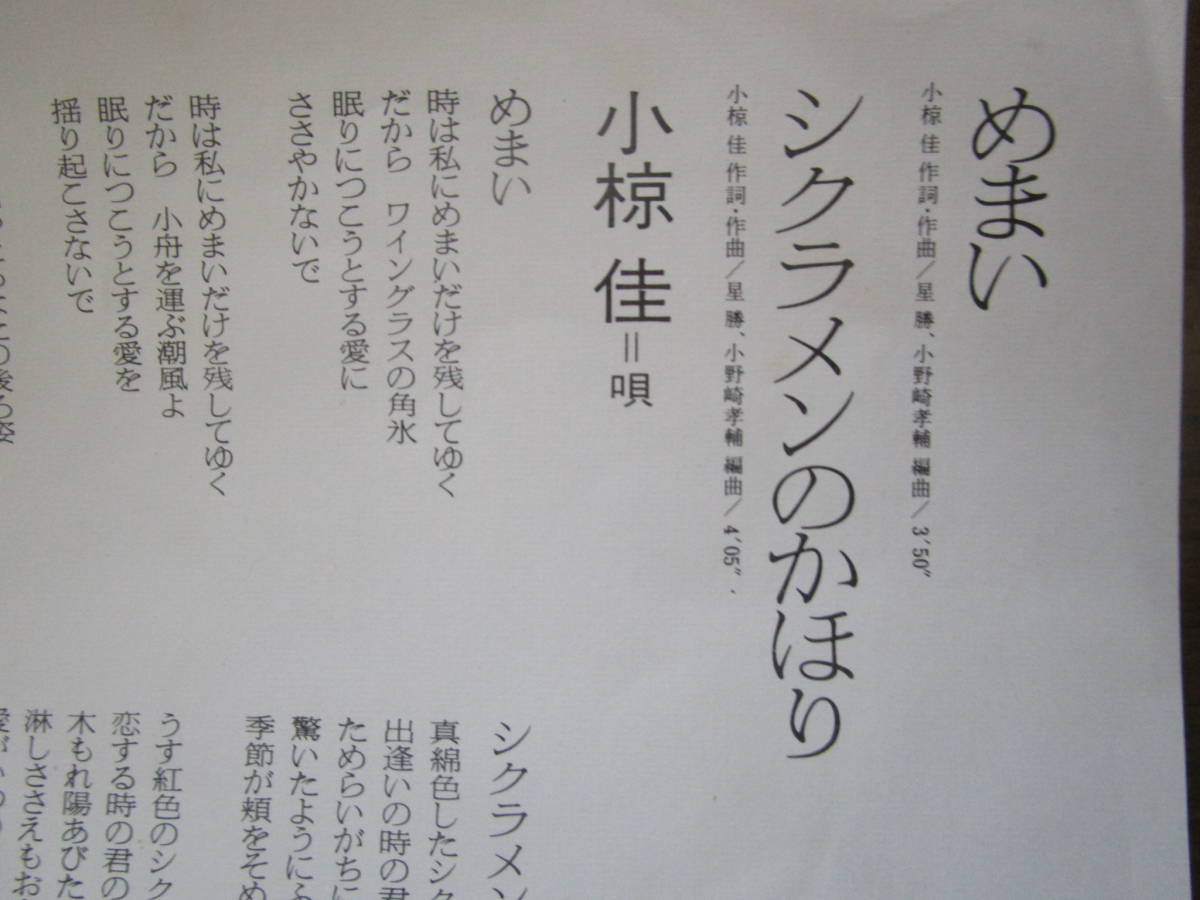 めまい
小椋 佳 作詞・作曲／星 勝、小野崎孝輔 編曲／3′50″
シクラメンのかほり
小椋 佳 作詞・作曲／星 勝、小野崎孝輔 編曲／4′05″
小椋 佳＝唄
めまい
時は私にめまいだけを残してゆく
だから ワイングラスの角氷
眠りにつこうとする愛に
ささやかないで
時は私にめまいだけを残してゆく
だから 小舟を運ぶ潮風よ
眠りにつこうとする愛を
揺り起こさないで
の後ろ姿
シクラメン
真綿色したシク
出逢いの時の君
ためらいがちに
驚いたようにふ
季節が頬をそめ
うす紅色のシク
恋する時の君の
木もれ陽あびた
淋しささえもお
愛が